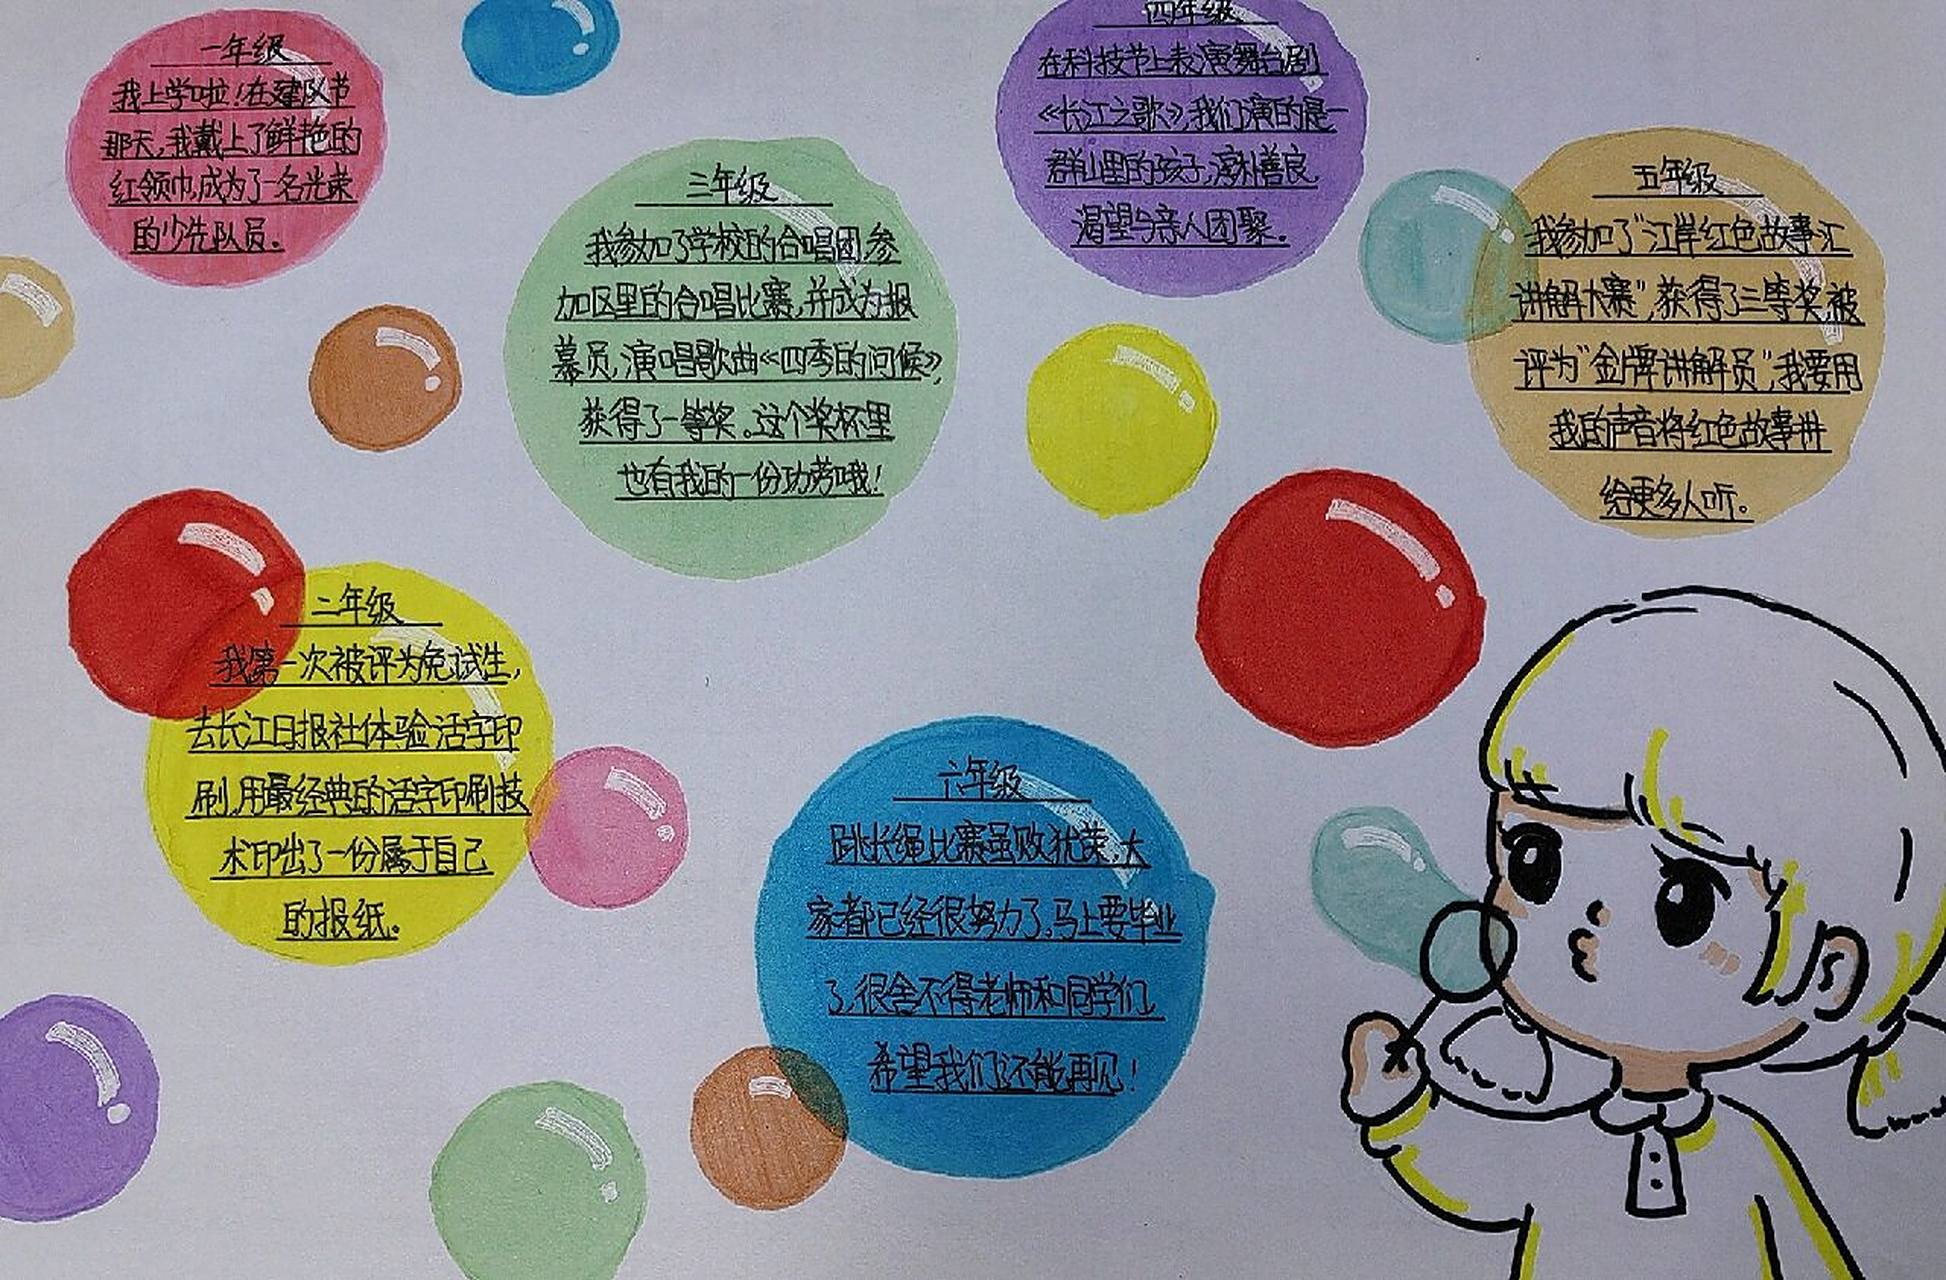 一年级
我上学啦！在建队节
那天，我戴上了鲜艳的
红领巾，成为了一名光荣
的少先队员。
二年级
我第一次被评为免试生，
去长江日报社体验活字印
刷，用最经典的活字印刷技
术印出了一份属于自己
的报纸。
三年级
我参加了学校的合唱团，参
加区里的合唱比赛，并成为报
幕员，演唱歌曲《四季的问候》，
获得了一等奖。这个奖杯里
也有我的一份功劳哦！
四年级
在科技节上表演舞台剧
《长江之歌》，我们演的是一
群山里的孩子，淳朴善良，
渴望与亲人团聚。
五年级
我参加了“江岸红色故事汇
讲解大赛”，获得了三等奖，被
评为“金牌讲解员”，我要用
我的声音将红色故事讲
给更多人听。
六年级
跳长绳比赛虽败犹荣，大
家都已经很努力了，马上要毕业
了，很舍不得老师和同学们，
希望我们还能再见！